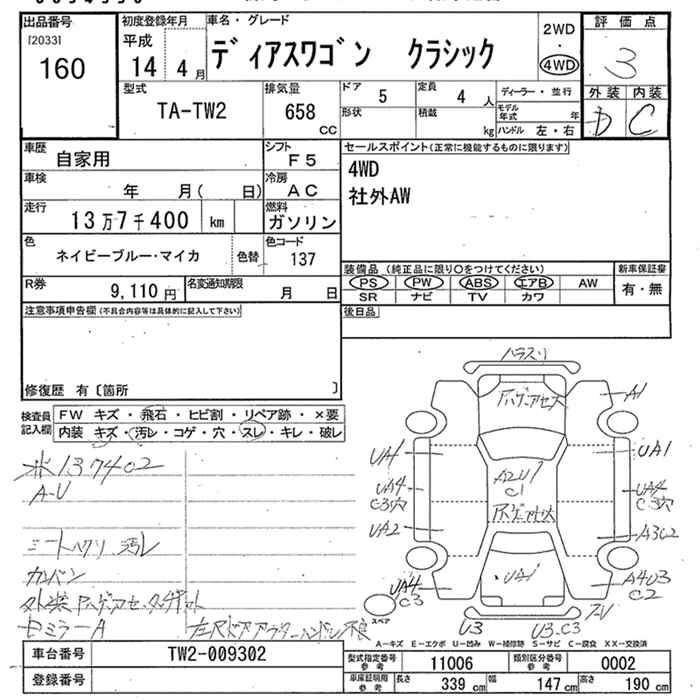 出品番号
[2033]
160
初度登録年月
平成
14 4月
車名・グレード
ディアスワゴン クラシック
2WD
・
4WD
評価点
3
外装 内装
D C
型式
TA-TW2
排気量
658 CC
ドア 5
定員 4 人
形状
積載 kg
ディーラー・並行
モデル年式 年
ハンドル 左・右
車歴
自家用
シフト
F5
車検
年 月( 日)
冷房
AC
走行
13万7千400 km
燃料
ガソリン
色
ネイビーブルー・マイカ
色替
色コード
137
R券
9,110 円
名変通知期限
月 日
セールスポイント(正常に機能するものに限ります)
4WD
社外AW
装備品 (純正品に限り○をつけてください)
PS PW ABS エアB AW
SR ナビ TV カワ
新車保証書
有・無
注意事項申告欄(不具合内容等は具体的に記入して下さい)
後日品
修復歴 有〔箇所 〕
検査員記入欄
FW キズ・飛石・ヒビ割・リペア跡・×要
内装 キズ・汚レ・コゲ・穴・スレ・キレ・破レ
137402
A-U
汚レ
A1
UA1
UA1
UA4
C3穴
UA4
C3穴
UA2
A3C2
A2U1
C1
UA1
UA4
C3
A4U3
C2
U3
U3.C3
スペア
A−キズ E−エクボ U−凹み W−補修跡 S−サビ C−腐食 XX−交換済
車台番号
TW2-009302
登録番号
型式指定番号 参考
11006
類別区分番号 参考
0002
車庫証明用 参考
長さ 339 cm
幅 147 cm
高さ 190 cm